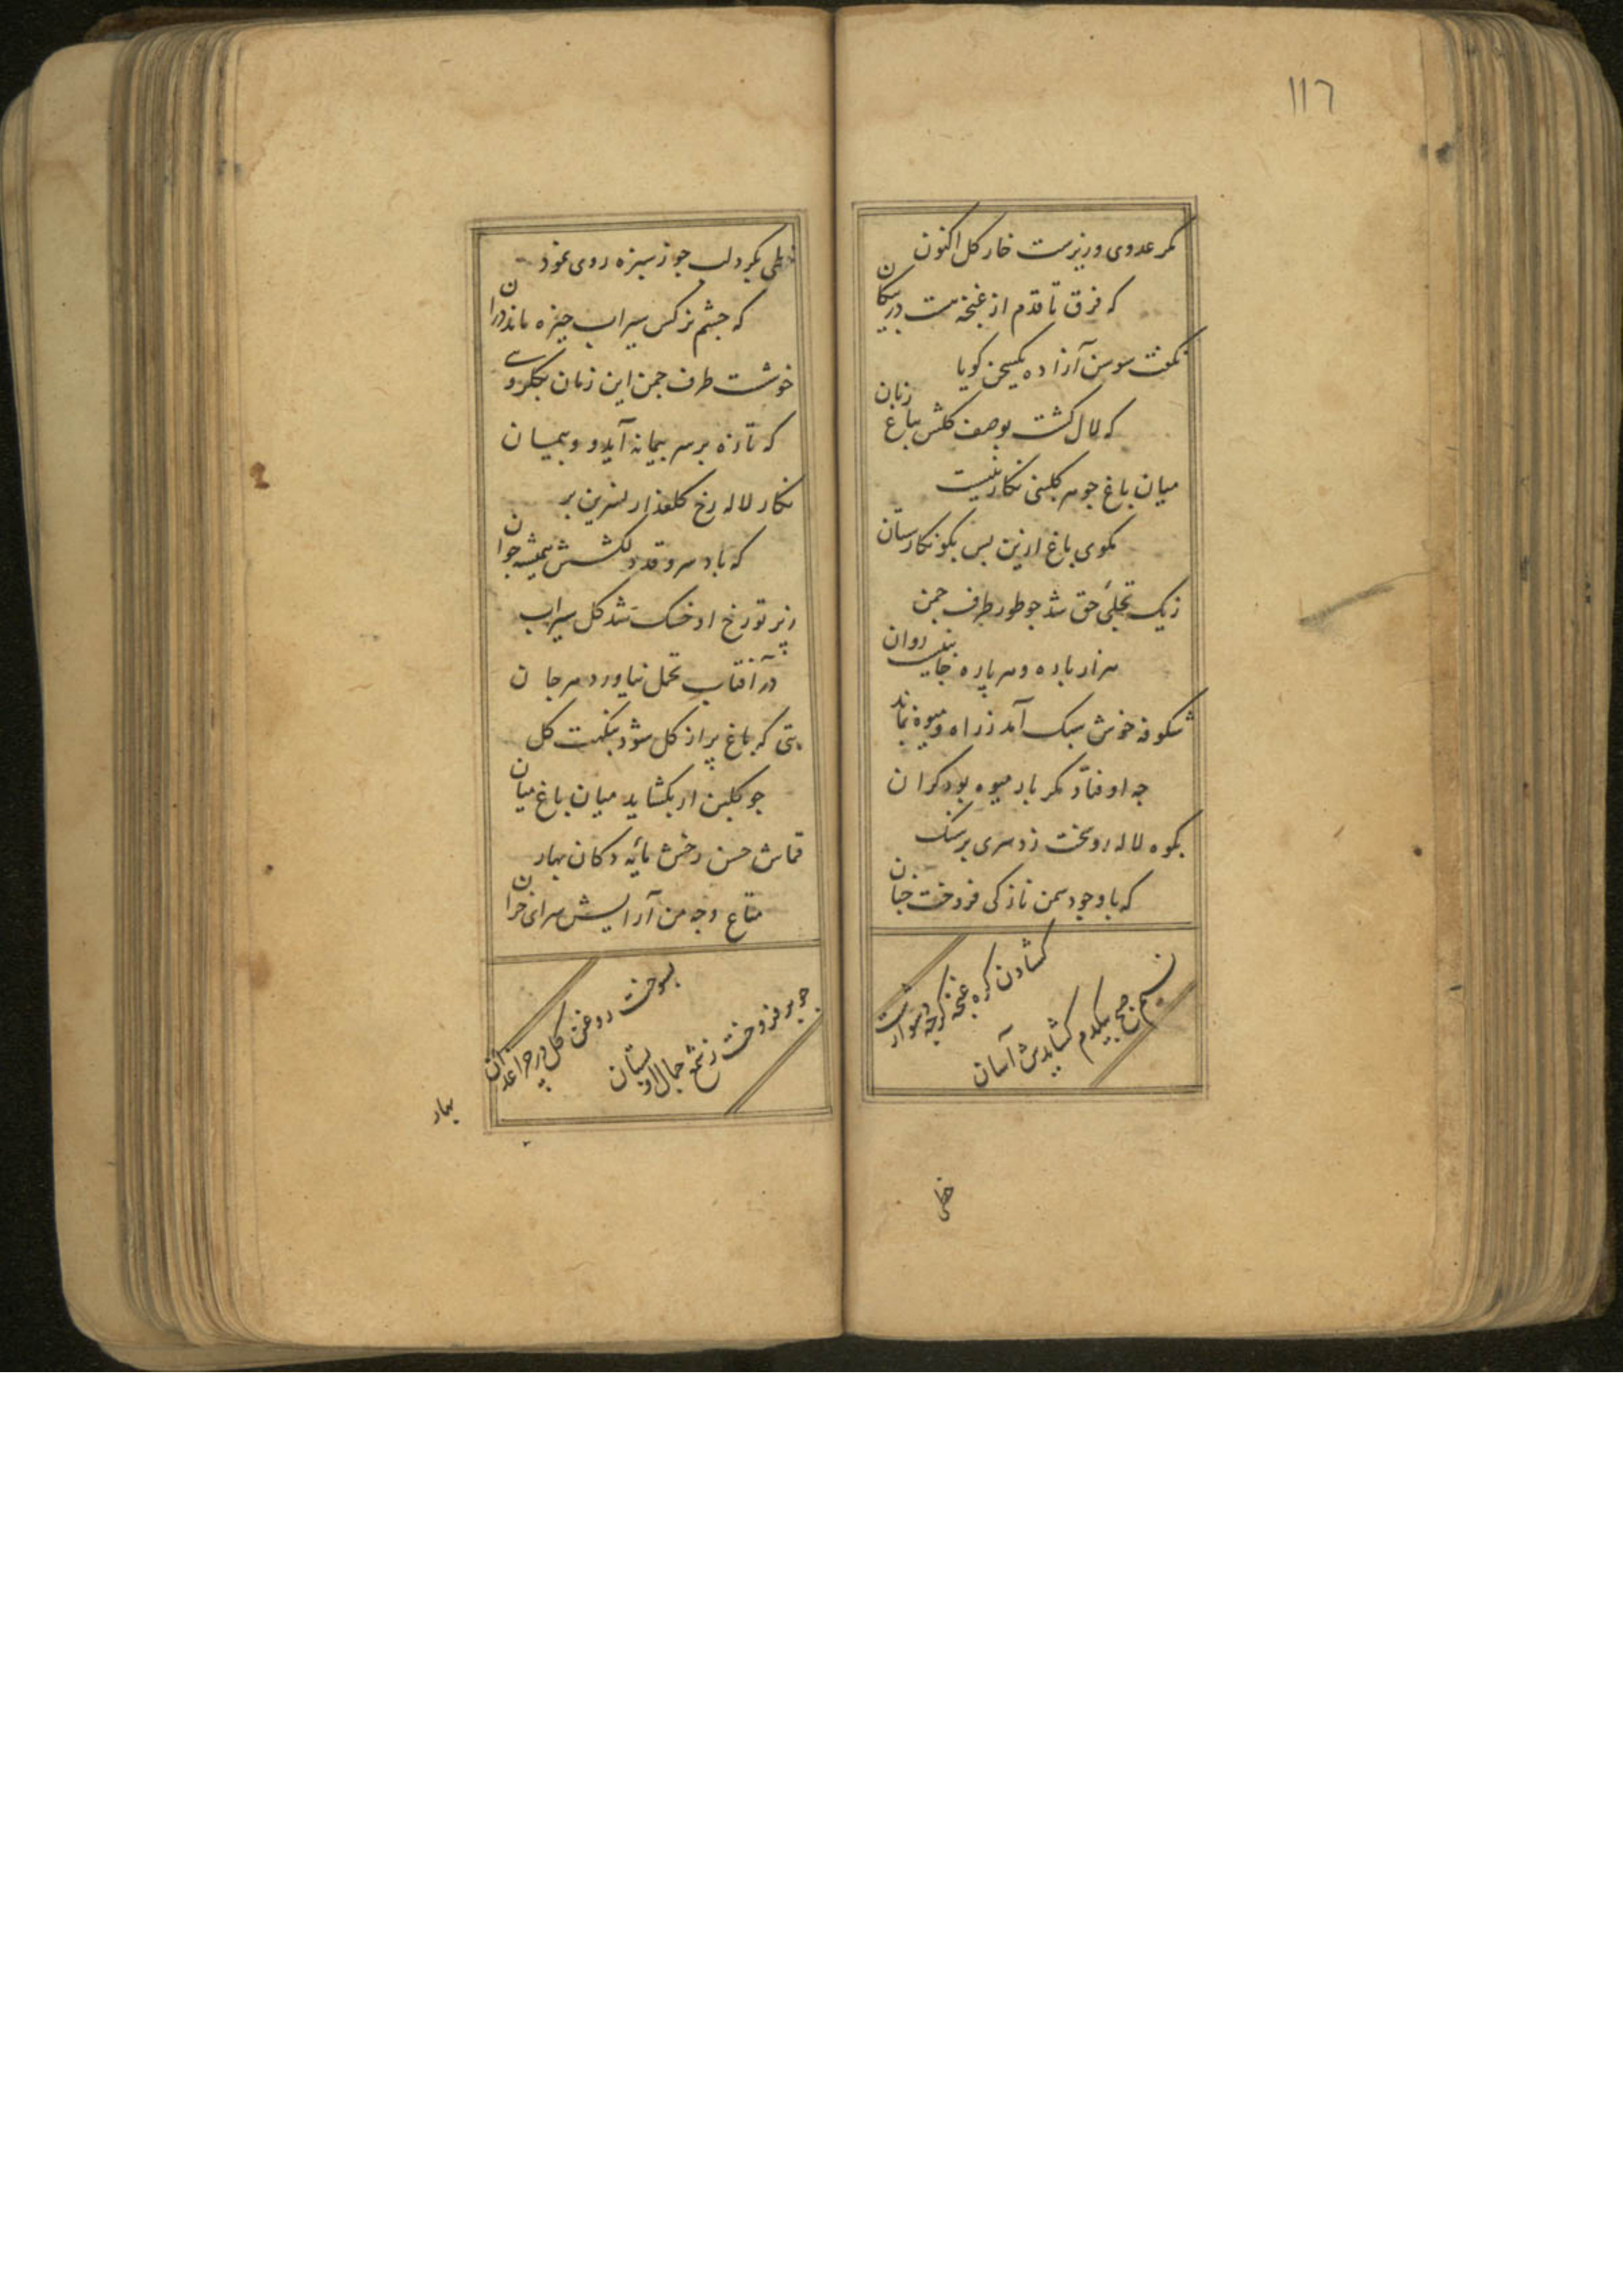 ١١٦
مکر عدوی وزیرست خار کل اکنون
که فرق تا قدم از غنچه هست در پیکان
نکفت سوسن آزاده یکسخن کویا
که لال کشت بوصف کلش بباغ زبان
میان باغ جو هر کلبنی نکاریست
مکوی باغ ازین پس بکو نکارستان
زیک تجلّی حق شد جو طور طرف جمن
هزار باره و هر پاره جانب روان
شکوفه خوش سبک آمد ز راه و میوه بماند
جه اوفتاد مکر بار میوه بود کران
بکوه لاله رو سخت زد سری بر سنک
که با وجود سمن نازکی فروخت جنان
کشادن کره غنچه کرجه دشوارست
نسیم صبح بیکدم کشایدش آسان
خطی
خطی بکرد لب جو ز سبزه روی نمود
که جشم نرکس سیراب خیره ماند دران
خوشست طرف جمن این زمان بجلکروی
که تازه بر سر پیمانه آید و پیمان
نکار لاله رخ کلعذار نسرین بر
که باد سرو قد دلکشش همیشه جوان
ز پرتو رخ او خشک شد کل سیراب
در آفتاب تحمل نیاورد مرجان
بتی که باغ پر از کل شود بنکهت کل
جو کلبن ار بکشاید میان باغ میان
قماش حسن رخش مایه دکان بهار
متاع وجه من آرایش سرای خزان
بسوخت روغن کل در جراغدان
جو برفروخت ز شمع جمال او بستان
بهار